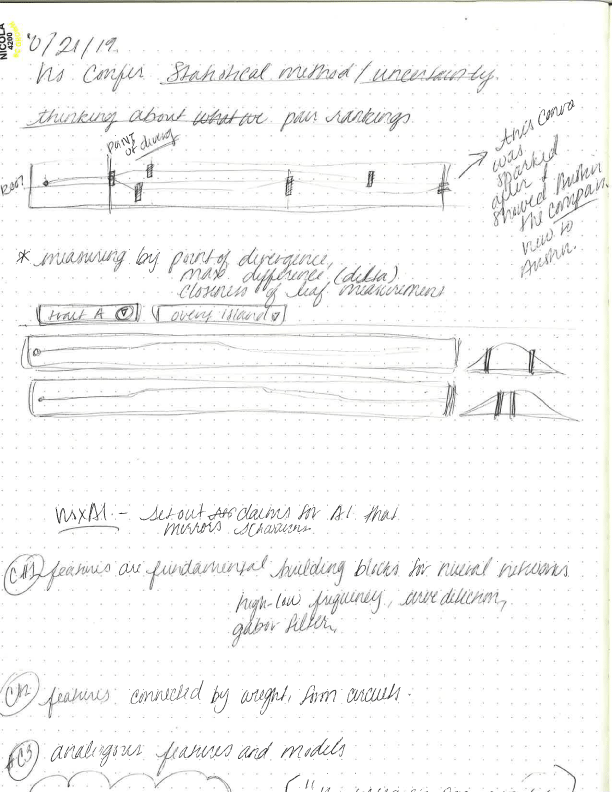 NICOLA
4200
0/21/19.
Vis Confer Statistical method / uncertainty.
thinking about what we pair rankings
point
of diverg
ROOT
this convo
was
sparked
after I
showed
the compan
view to
* measuring by point of divergence,
max difference (delta)
closeness of leaf measurement
trait A
every island
VISxAI. - set out claims for AI that
mirrors
C#1 features are fundamental building blocks for neural networks
high-low frequency, curve detection,
gabor filter,
C#2 features connected by weight, form circuits.
#C3 analogous features and models